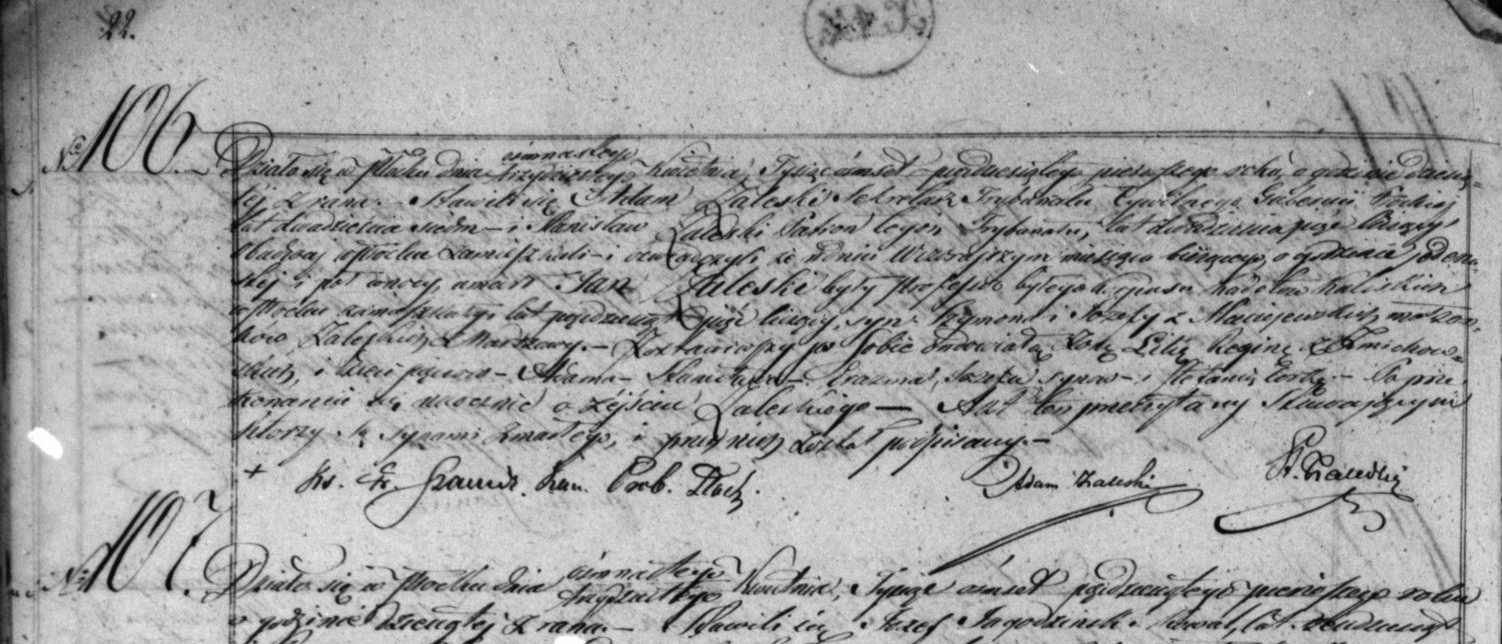 22.
No 106.
Działo się w Płocku dnia ośmnastego trzydziestego Kwietnia, Tysiąc ośmset pięćdziesiątego pierwszego roku, o godzinie dziewią-
tej z rana. – Stawili się Adam Zaleski Sekretarz Trybunału Cywilnego Gubernii Płockiej
lat dwadzieścia siedm – i Stanisław Zaleski Patron tegoż Trybunału, lat dwadzieścia pięć liczący
obadwaj w Płocku zamieszkali – i oświadczyli że w dniu wczorajszym miesiąca bieżącego, o godzinie jedena-
stej i pół w nocy, umarł Jan Zaleski były Professor byłego Korpusu Kadetów Kaliskich
w Płocku zamieszkały, lat pięćdziesiąt pięć liczący, syn Szymona i Józefy z Maciejewskich małżon-
ków Zaleskich z Warszawy. – Zostawiwszy po sobie owdowiałą żonę Reginę z Żmichow-
skich, i dzieci pięcioro – Adama – Stanisława – Erazma, Józefa synów – i Stefanię córkę. – Po prze-
konaniu się naocznie o zejściu Zaleskiego – Akt ten przeczytany Stawającym
którzy są synami zmarłego, i przez nich został podpisany. –
+ Ks. Fr. Kan. Prob. Płock.
Adam Zaleski
St. Zaleski
No 107.
Działo się w Płocku dnia ośmnastego trzydziestego Kwietnia, Tysiąc ośmset pięćdziesiątego pierwszego roku
o godzinie dziewiątej z rana. – Stawili się Józef Jagodziński Kowal, lat